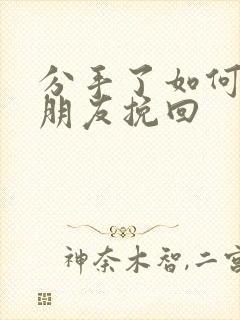 分手了如何
朋友挽回
神奈木智,二宫